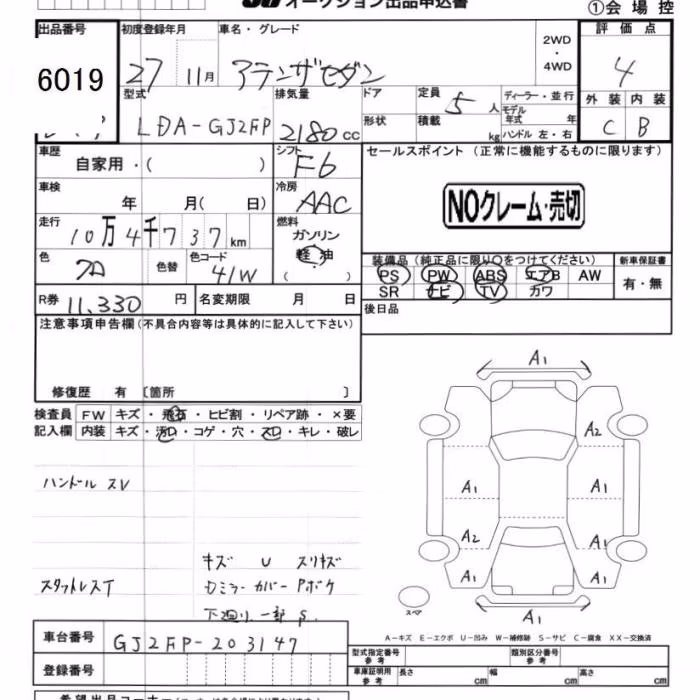 オークション出品申込書
①会場控
出品番号 初度登録年月 車名・グレード 評価点
6019 27 11月 アテンザセダン 2WD・4WD 4
型式 排気量 ドア 定員 5人 ディーラー・並行 外装 内装
LDA-GJ2FP 2180cc 形状 積載 kg モデル年式 ハンドル 左・右 C B
車歴 自家用・( ) シフト F6 セールスポイント(正常に機能するものに限ります)
車検 年 月( 日) 冷房 AAC NOクレーム・売切
走行 10万4千737km 燃料 ガソリン 軽油 ( )
色 クロ 色替 色コード 41W
装備品(純正品に限り○をつけてください) 新車保証書
PS PW ABS エアB AW 有・無
SR ナビ TV カワ
R券 11,330円 名変期限 月 日 後日品
注意事項申告欄(不具合内容等は具体的に記入して下さい)
修復歴 有〔箇所 〕
検査員 FW キズ・飛石・ヒビ割・リペア跡・×要
記入欄 内装 キズ・汚れ・コゲ・穴・スレ・キレ・破レ
ハンドル スレ
キズ U スリキズ
スタットレスT
ミラーカバー Pボケ
下廻り一部 S
A1
A2
A1 A1
A2 A1
A1 A1
スペア A1
A-キズ E-エクボ U-凹み W-補修跡 S-サビ C-腐食 XX-交換済
車台番号 GJ2FP-203147
登録番号
型式指定番号 参考 類別区分番号 参考
車庫証明用 参考 長さ cm 幅 cm 高さ cm